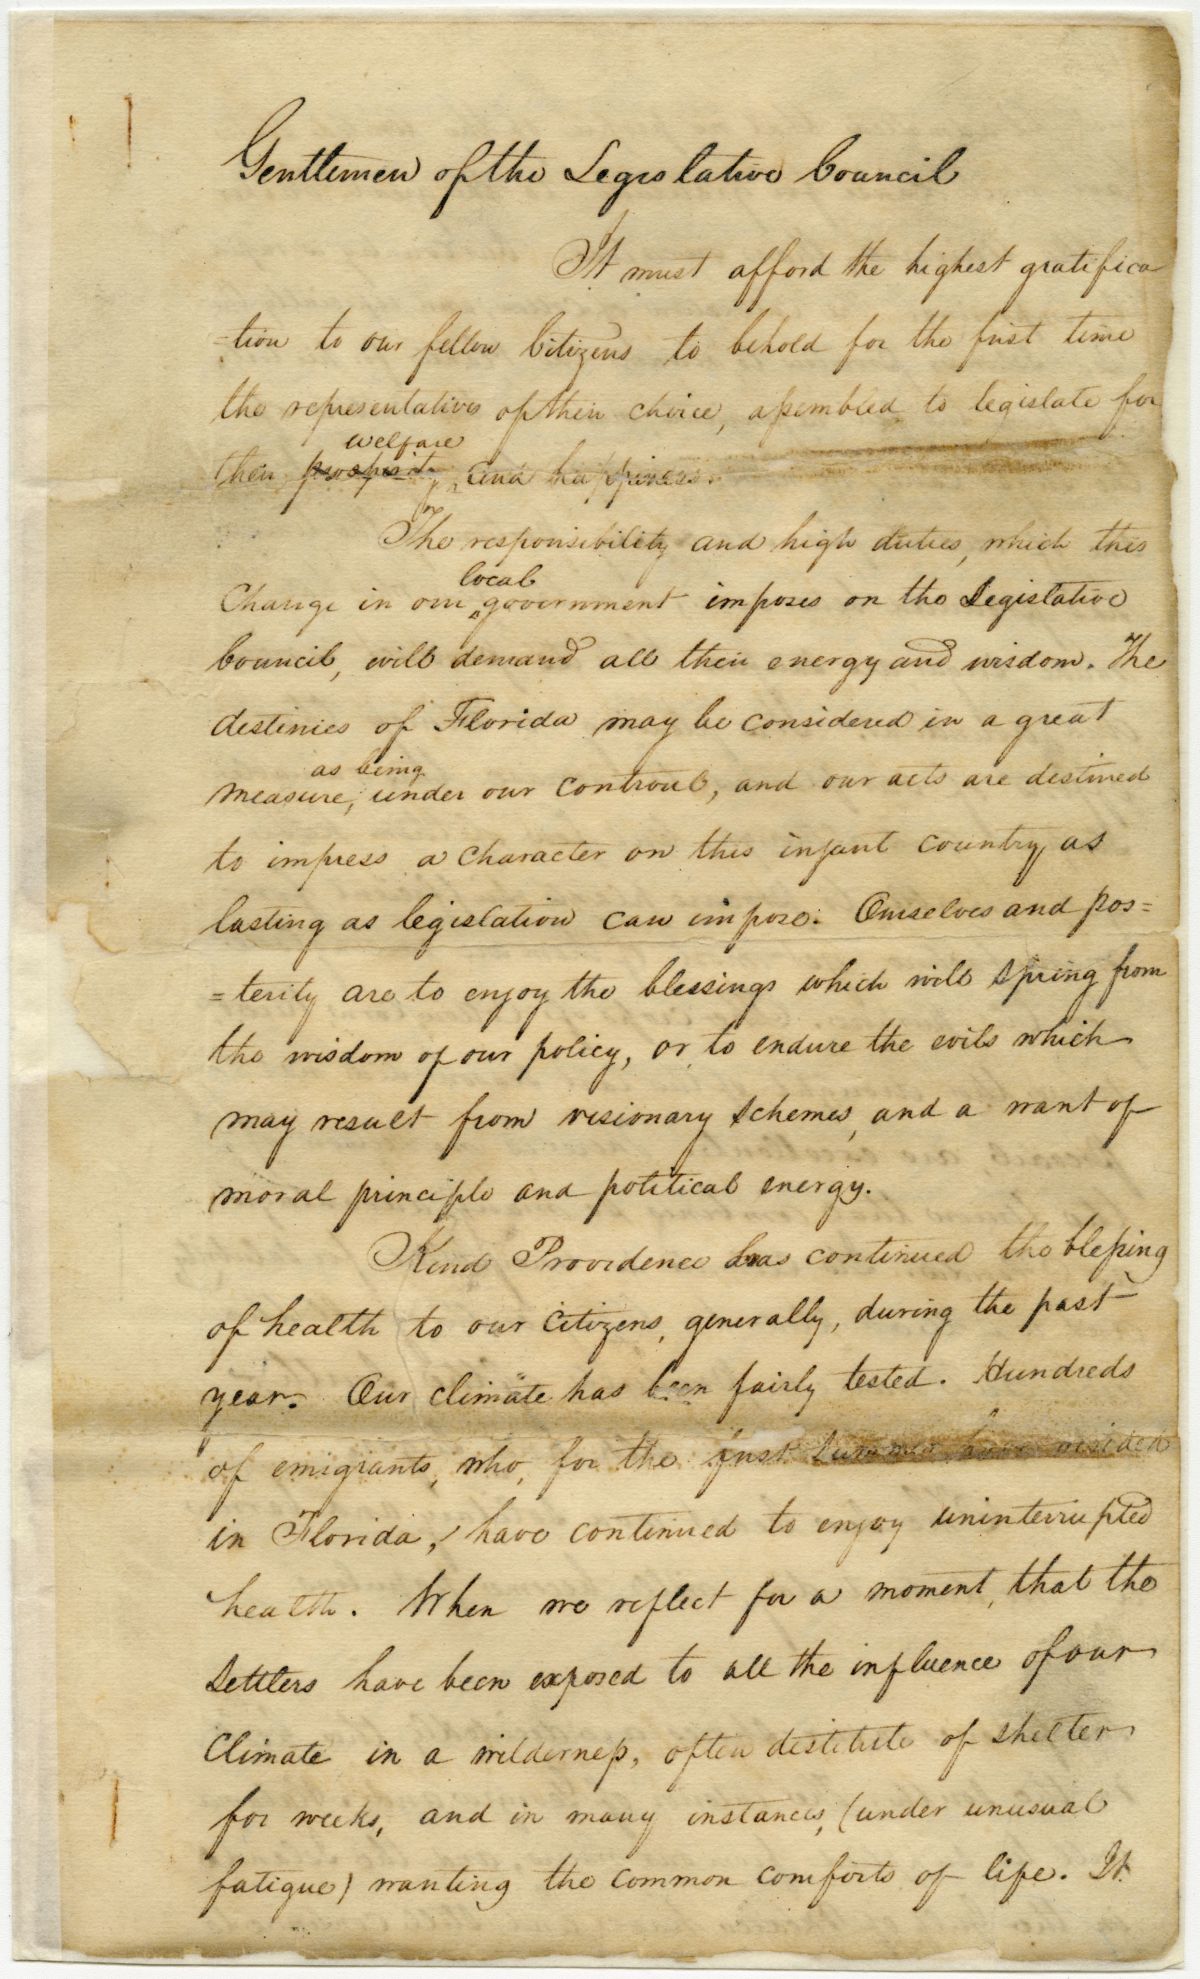 Gentlemen of the Legislative Council
It must afford the highest gratifica
=tion to our fellow Citizens to behold for the first time
the representatives of their choice, assembled to legislate for
welfare
their prosperity and happiness.
The responsibility and high duties, which this
local
Change in our government imposes on the Legislative
Council, will demand all their energy and wisdom. The
destinies of Florida may be considered in a great
as being
measure, under our controul, and our acts are destined
to impress a character on this infant country, as
lasting as legislation can impose. Ourselves and pos=
=terity are to enjoy the blessings which will spring from
the wisdom of our policy, or, to endure the evils which
may result from visionary schemes, and a want of
moral principle and political energy.
Kind Providence has continued the blessing
of health to our citizens, generally, during the past
year. Our climate has been fairly tested. Hundreds
of emigrants, who, for the first summer, have resided
in Florida, have continued to enjoy uninterrupted
health. When we reflect for a moment, that the
Settlers have been exposed to all the influence of our
Climate in a wilderness, often distitute of shelter
for weeks, and in many instances, (under unusual
fatigue) wanting the common comforts of life. It